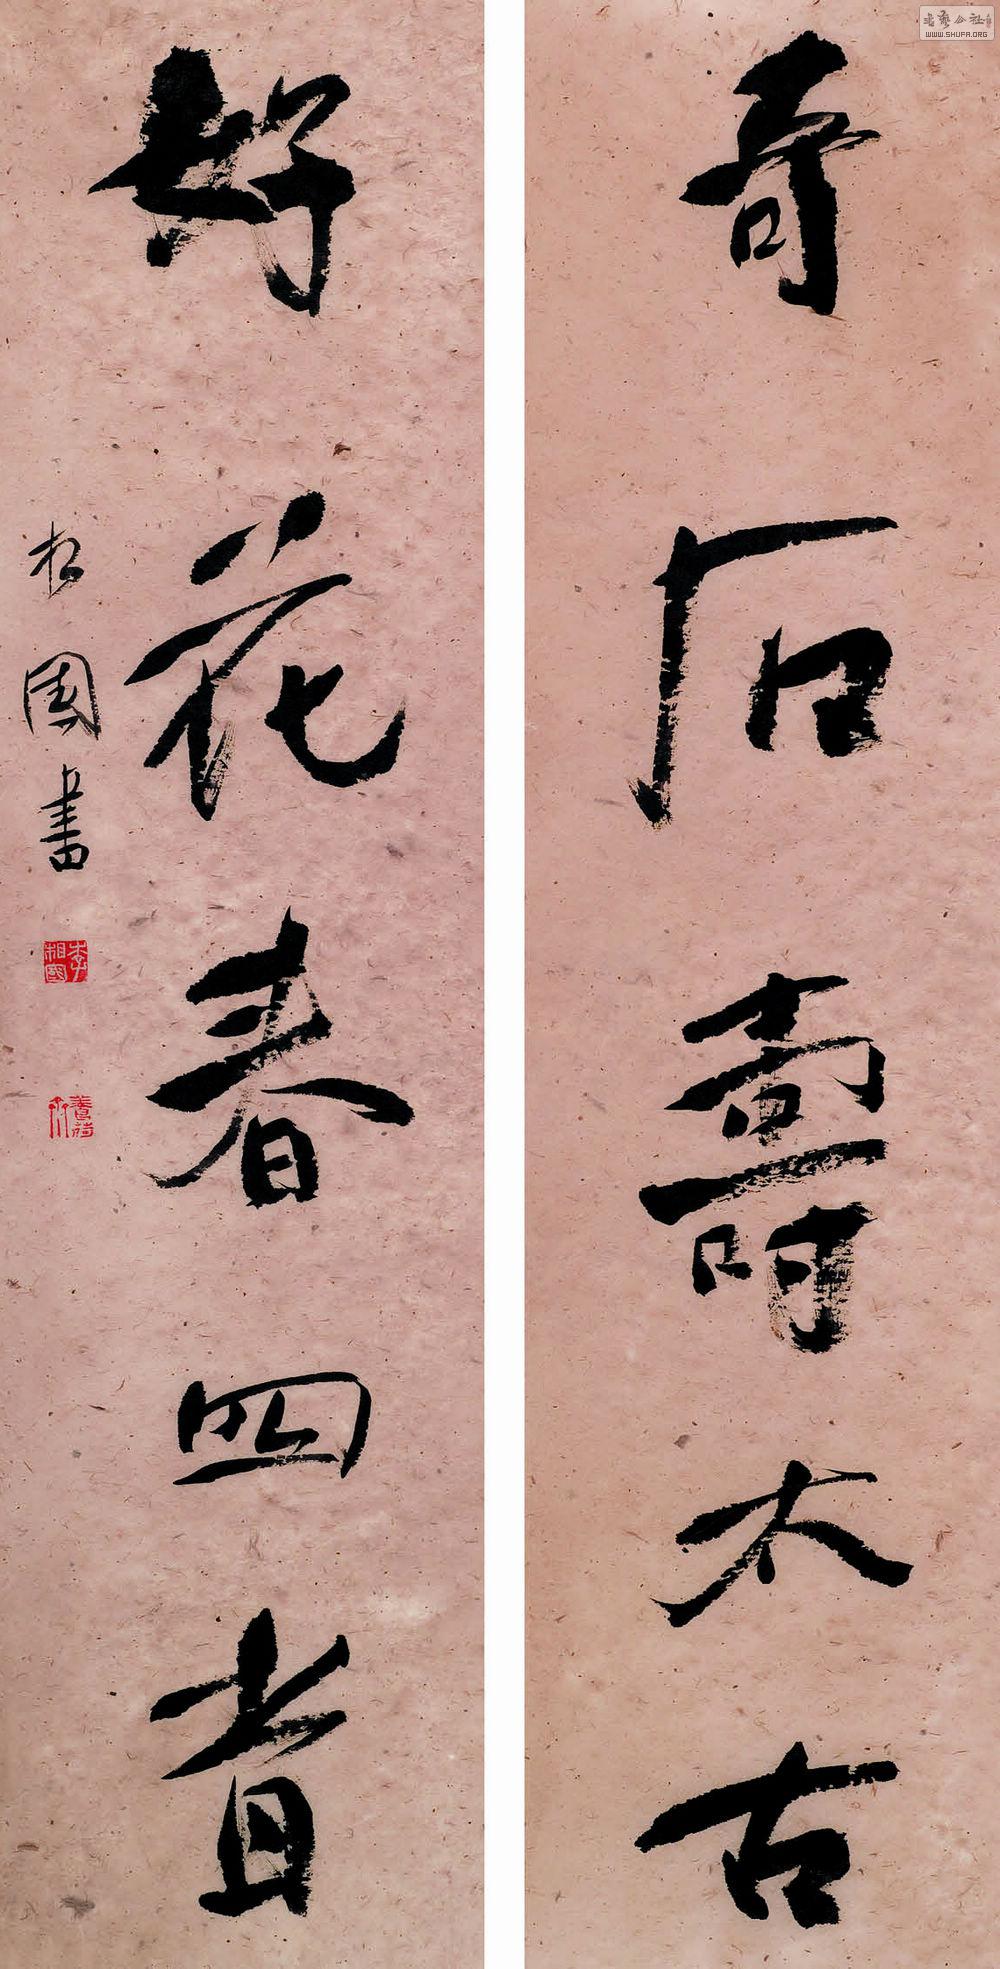 奇石壽太古
好花春四旹
相國書
李相國
书艺公社
WWW.SHUFA.ORG